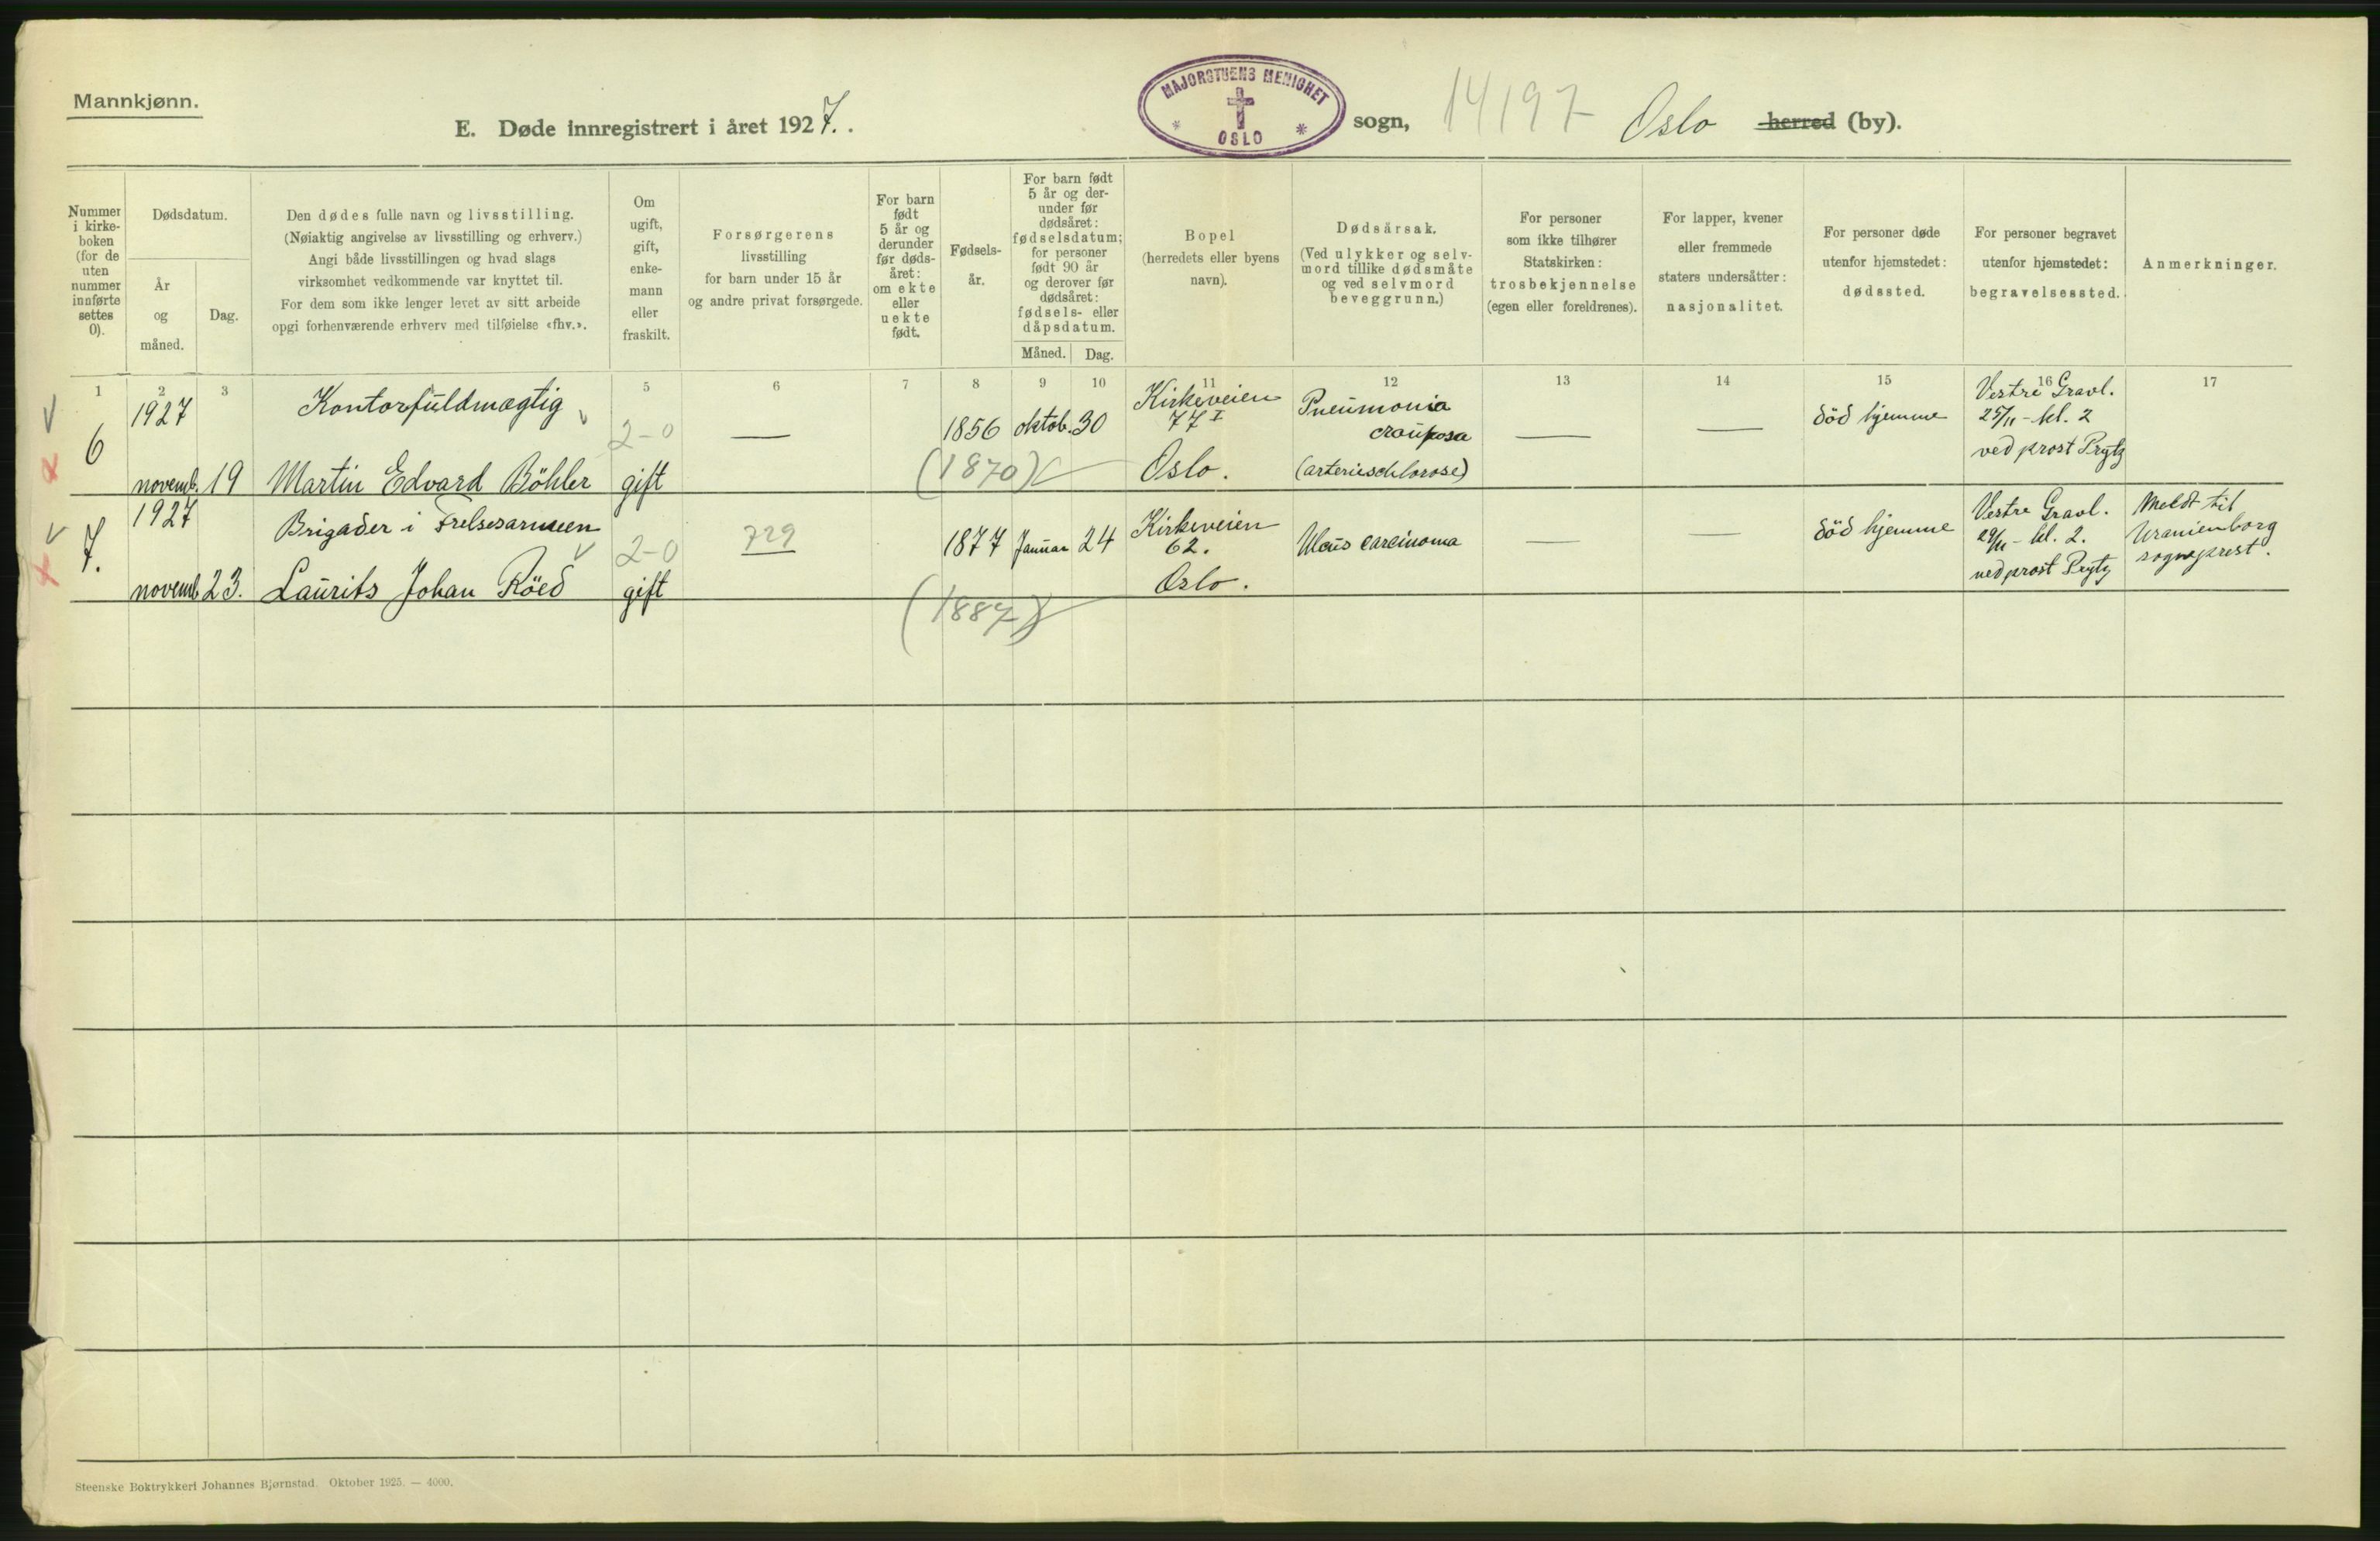 Mannkjønn.
E. Døde innregistrert i året 1927.
MAJORSTUENS MENIGHET
OSLO
sogn,
14197
Oslo
herred (by).
Nummer
i kirke-
boken
(for de
uten
nummer
innførte
settes
0).
Dødsdatum.
År
og
måned.
Dag.
Den dødes fulle navn og livsstilling.
(Nøiaktig angivelse av livsstilling og erhverv.)
Angi både livsstillingen og hvad slags
virksomhet vedkommende var knyttet til.
For dem som ikke lenger levet av sitt arbeide
opgi forhenværende erhverv med tilføielse «fhv.».
Om
ugift,
gift,
enke-
mann
eller
fraskilt.
Forsørgerens
livsstilling
for barn under 15 år
og andre privat forsørgede.
For barn
født
5 år og
derunder
før døds-
året:
om ekte
eller
uekte
født.
Fødsels-
år.
For barn født
5 år og der-
under før
dødsåret:
fødselsdatum;
for personer
født 90 år
og derover før
dødsåret:
fødsels- eller
dåpsdatum.
Måned.
Dag.
Bopel
(herredets eller byens
navn).
Dødsårsak.
(Ved ulykker og selv-
mord tillike dødsmåte
og ved selvmord
beveggrunn.)
For personer
som ikke tilhører
Statskirken:
trosbekjennelse
(egen eller foreldrenes).
For lapper, kvener
eller fremmede
staters undersåtter:
nasjonalitet.
For personer døde
utenfor hjemstedet:
dødssted.
For personer begravet
utenfor hjemstedet:
begravelsessted.
Anmerkninger.
1 2 3 5 6 7 8 9 10 11 12 13 14 15 16 17
6
1927
novemb. 19
Kontorfuldmægtig
Martin Edvard Böhler
2-0
gift
—
1856 oktob. 30
(1870)
Kirkeveien
77 I
Oslo.
Pneumonia
crouposa
(arterieschlorose)
—
—
död hjemme
Vestre Gravl.
25/11 - kl. 2
ved prost Prytz
7.
1927
novemb 23.
Brigader i Frelsesarmeen
Laurits Johan Röed
2-0
gift
729
1877 Januar 24
(1887)
Kirkeveien
62.
Oslo.
Ulcus carcinoma
—
—
död hjemme
Vestre Gravl.
29/11 - kl. 2.
ved prost Prytz
Meldt til
Uranienborg
sogneprest.
Steenske Boktrykkeri Johannes Bjørnstad. Oktober 1925. — 4000.